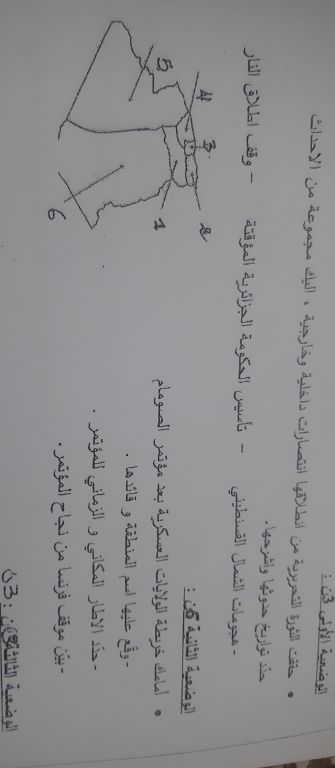 الوضعية الأولى 3ن :
• حققت الثورة التحريرية من انطلاقها انتصارات داخلية وخارجية ، اليك مجموعة من الاحداث
حدّد تواريخ حدوثها واشرحها.
- هجومات الشمال القسنطيني - تأسيس الحكومة الجزائرية المؤقتة - وقف اطلاق النار
الوضعية الثانية 6ن :
• أمامك خريطة الولايات العسكرية بعد مؤتمر الصومام
- وقّع عليها اسم المنطقة و قائدها .
- حدّد الاطار المكاني و الزماني للمؤتمر .
- بيّن موقف فرنسا من نجاح المؤتمر .
5
4
3
2
1
6
الوضعية الثالثة : 3ن